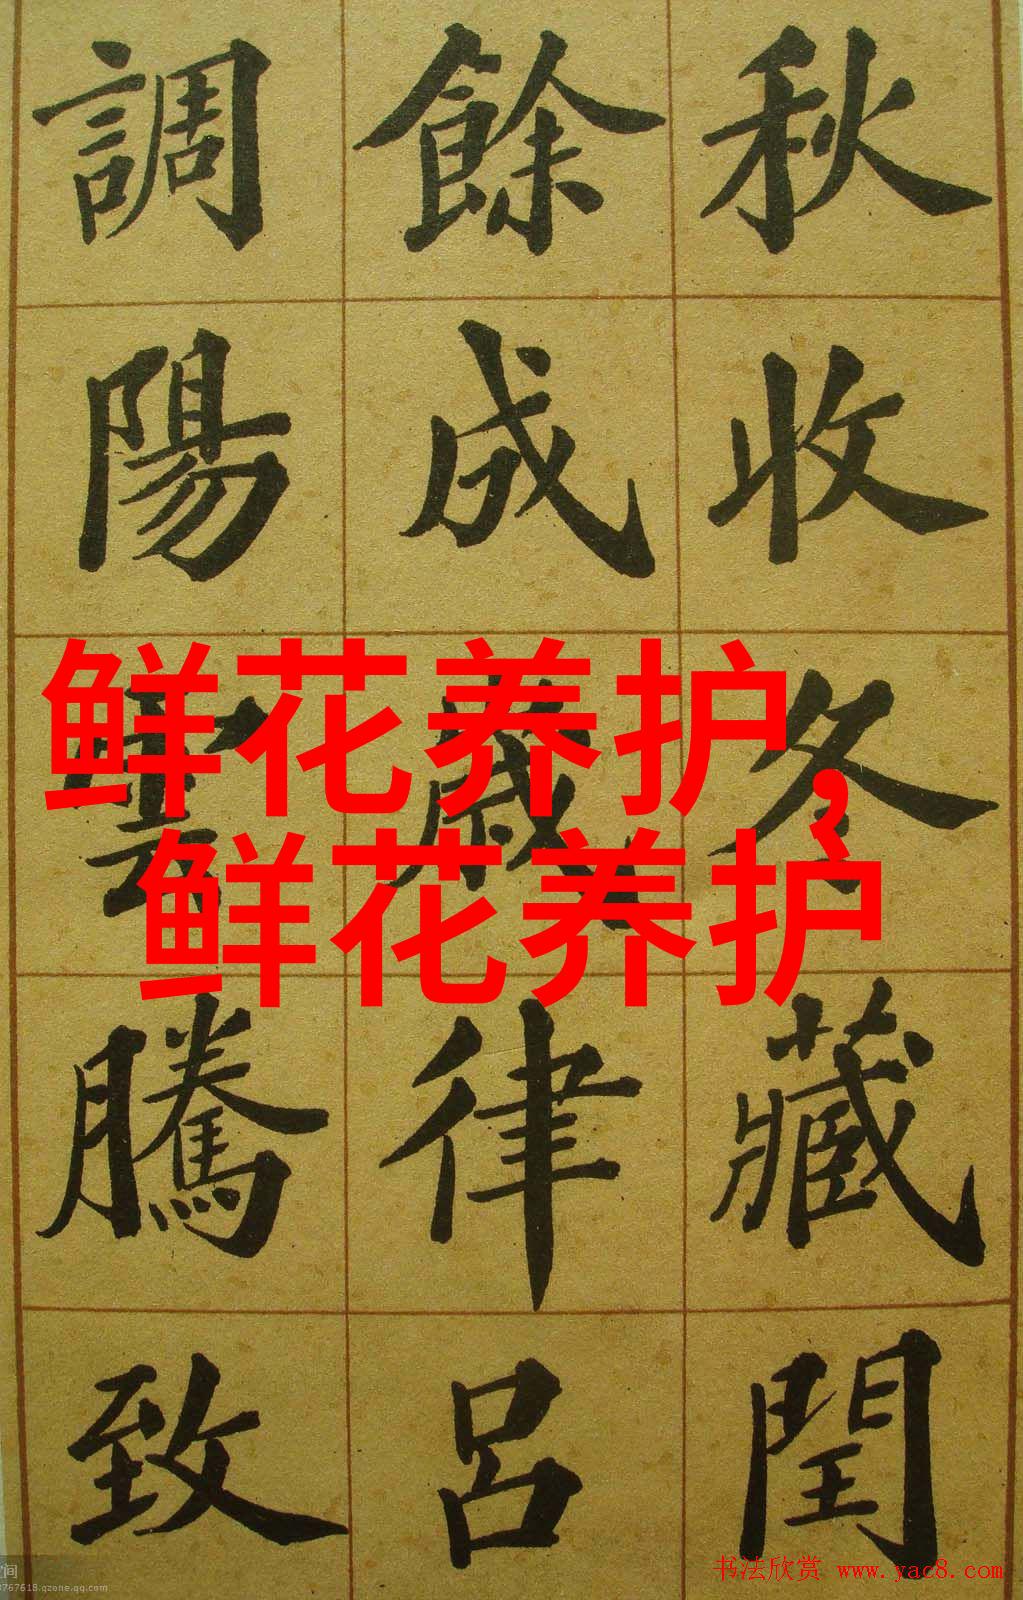 秋收冬藏閏
餘成歲律呂
調陽雲騰致
鲜花养护,
鲜花养护
书法欣赏 www.yac8.com
间
767618.qzone.qq.com